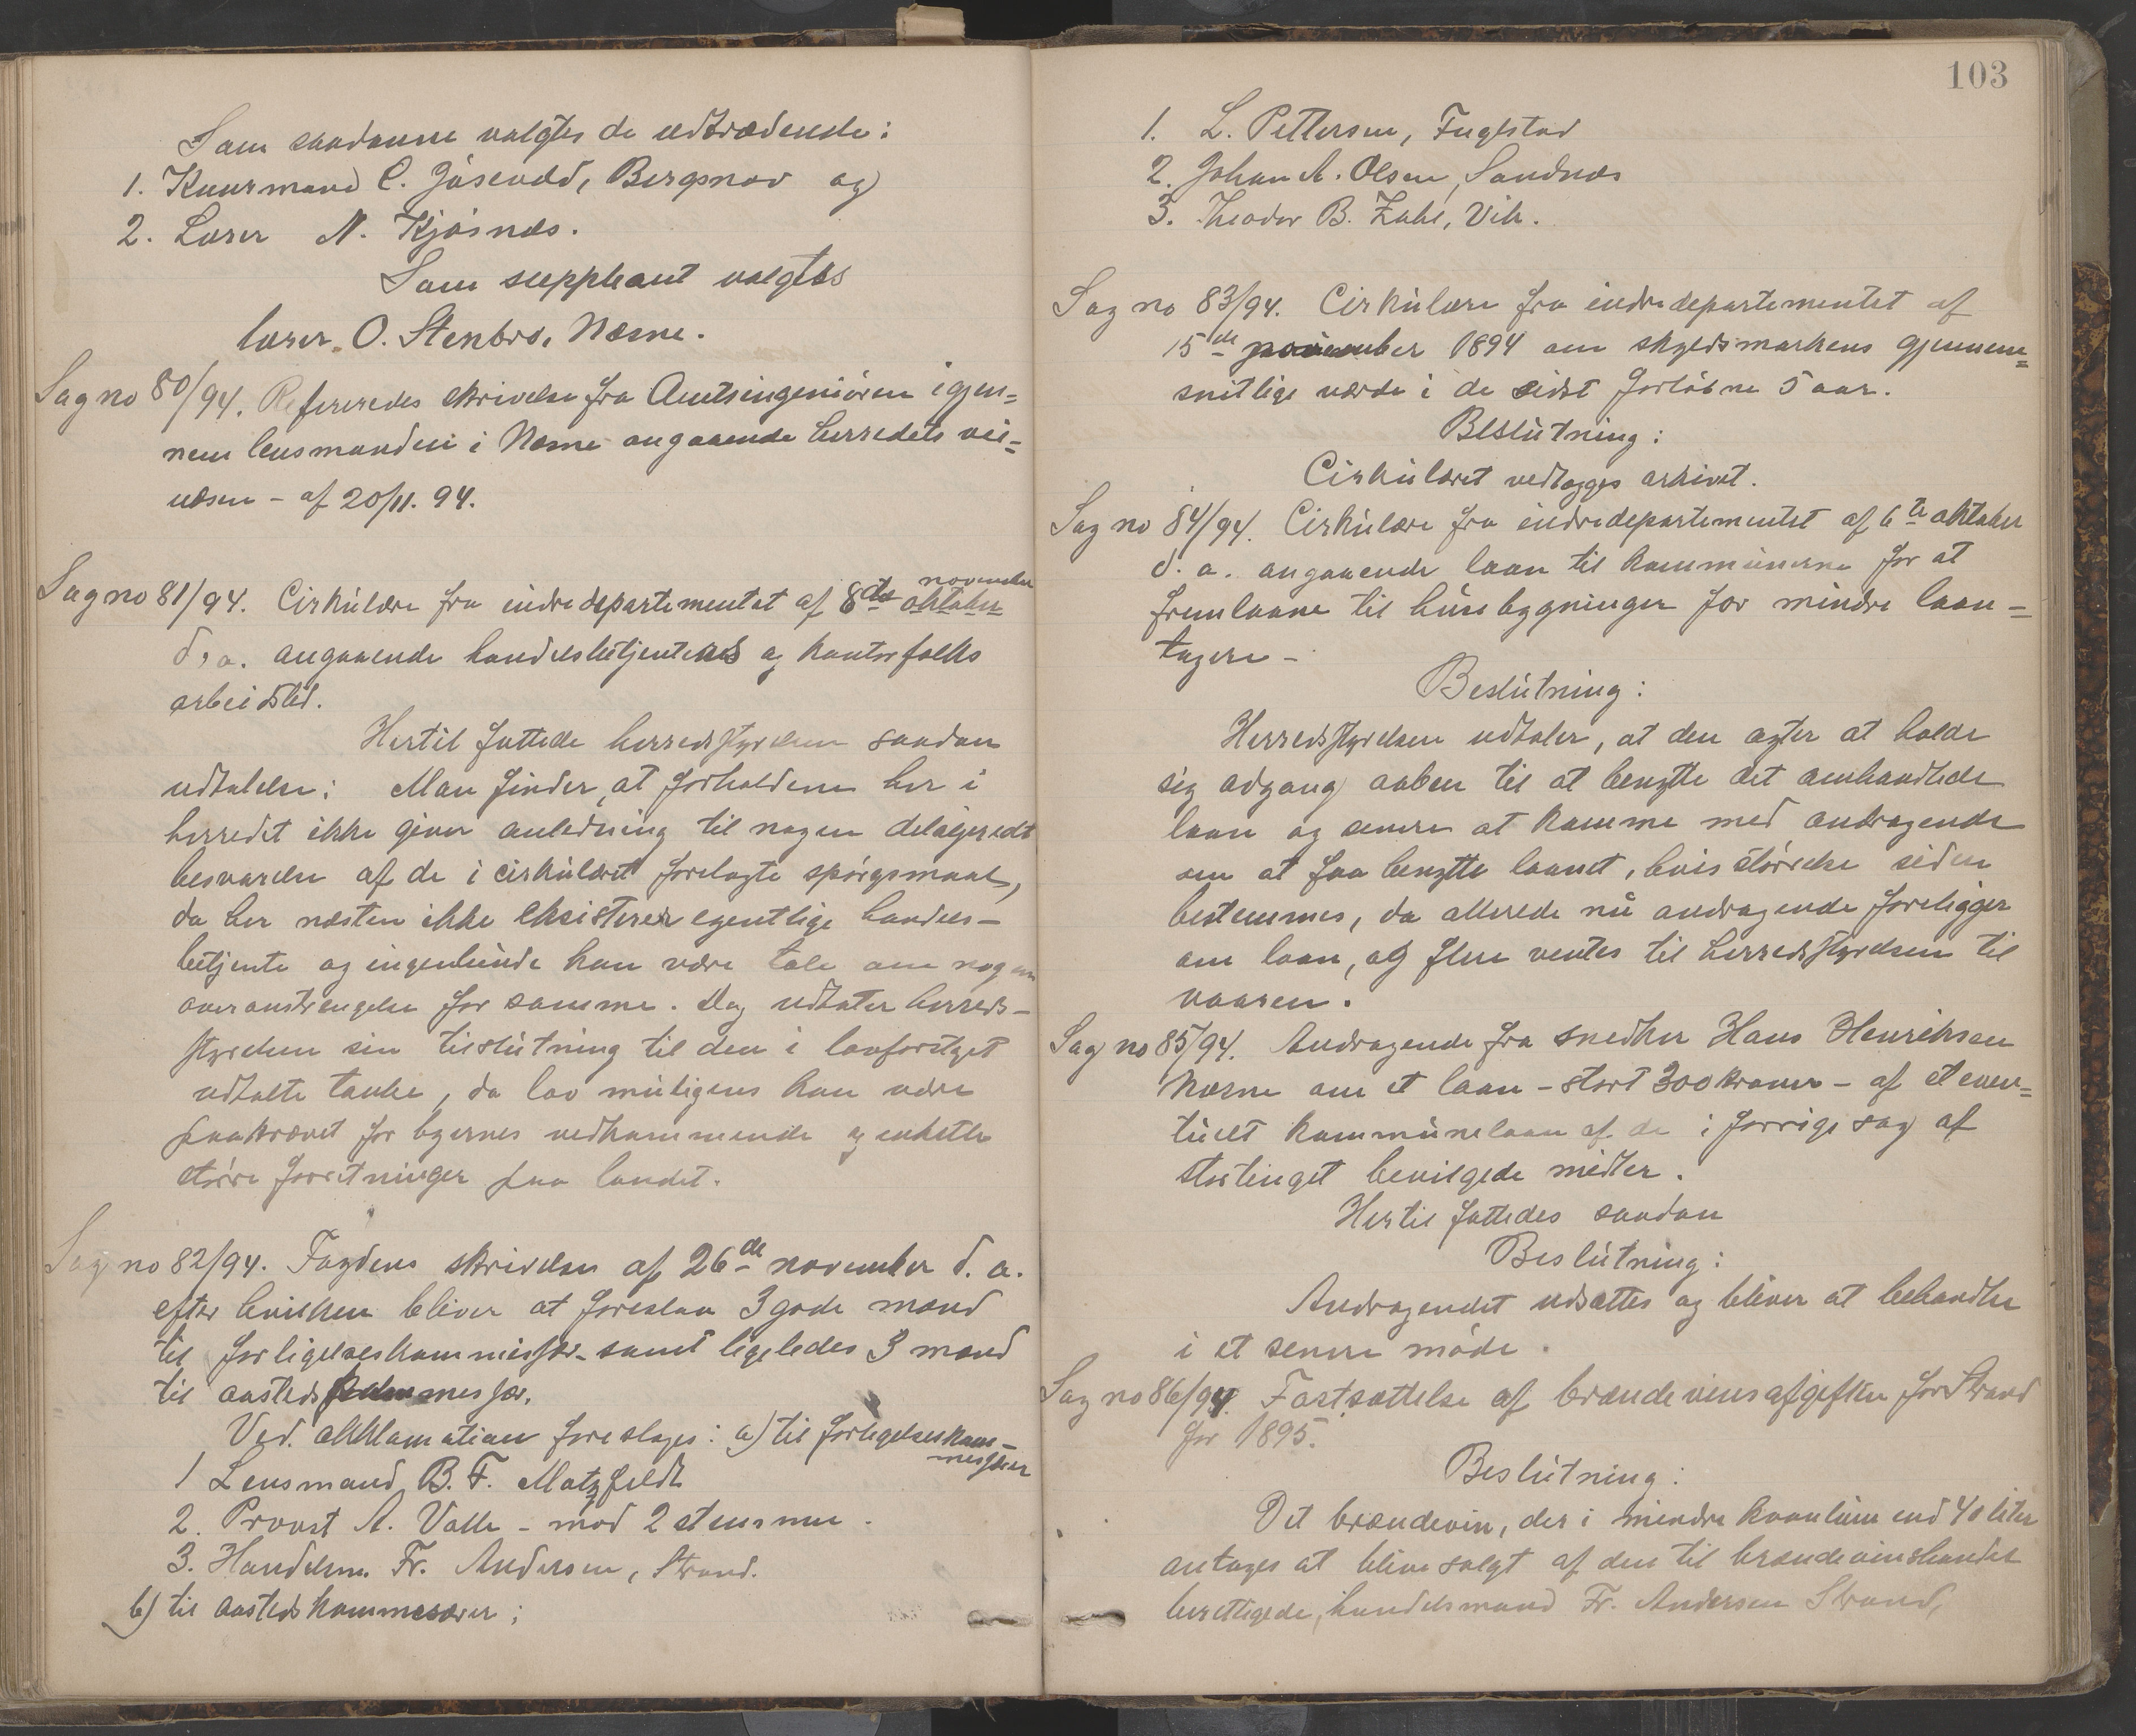 Som saadanne valgtes de udtrædende:
1. Kuurmand C. Jøsevold, Bergsnov og
2. Lærer N. Kjøsnæs.
Som suppleant valgtes
lærer O. Stenbro, Næsne.
Sag no 80/94. Refereredes skrivelse fra Amtsingeniøren igjen=
nem lensmanden i Næsne angaaende herredets vei=
væsen - af 20/11. 94.
Sag no 81/94. Cirkulære fra indredepartementet af 8de oktober november
d. a. angaaende handelsbetjentes og kontorfolks
arbeidstid.
Hertil fattede herredsstyrelsen saadan
udtalelse: Man finder, at forholdene her i
herredet ikke giver anledning til nogen detaljeredt
besvarelse af de i cirkulæret forelagte spørgsmaal,
da her næsten ikke eksisterer egentlige handels-
betjente og ingenlunde kan være tale om nogen
overanstrengelse for samme. Dog udtaler herreds-
styrelsen sin tilslutning til den i lovforslaget
udtalte tanke, da lov muligens kan være
paakrævet for byernes vedkommende og enkelte
større forretninger paa landet.
Sag no 82/94. Fogdens skrivelse af 26de november d. a.
efter hvilken bliver at foreslaa 3 gode mænd
til forligelseskommissær - samt ligeledes 3 mænd
til aastedskommissær.
Ved akklamation foreslages: a) til forligelseskom-
missær
1 Lensmand B. F. Motzfeldt
2. Provst A. Valle - mod 2 stemmer.
3. Handelsm. Fr. Andersen, Strand.
b) til aastedskommesærer;
103
1. L. Pettersen, Fuglstad
2. Johan A. Olsen, Sandnæs
3. Theodor B. Zahl, Vik.
Sag no 83/94. Cirkulære fra indredepartementet af
15de november 1894 om skyldmarkens gjennem=
snitlige værde i de sidst forløbne 5 aar.
Beslutning:
Cirkulæret vedlægges arkivet.
Sag no 84/94. Cirkulære fra indredepartementet af 6te oktober
d. a. angaaende laan til kommunerne for at
fremlaane til husebygninger for mindre laan=
tagere -
Beslutning:
Herredsstyrelsen udtaler, at den agter at holde
sig adgang aaben til at benytte det omhandlede
laan og senere at komme med andragende
om at faa benytte laanet, hvis størrelse siden
bestemmes, da allerede nu andragende foreligger
om laan, og flere ventes til herredsstyrelsen til
vaaren.
Sag no 85/94. Andragende fra snedker Hans Henriksen
Næsne om et laan - stort 300 kroner - af et even=
tuelt kommunelaan af de i forrige sag af
stortinget bevilgede midler.
Hertil fattedes saadan
Beslutning:
Andragendet udsættes og bliver at behandle
i et senere møde.
Sag no 86/94. Fastsættelse af brændevinsafgiften for Strand
for 1895.
Beslutning:
Det brændevin, der i mindre kvantum end 40 liter
antages at blive solgt af den til brændevinshandel
berettigede, handelsmand Fr. Andersen Strand,